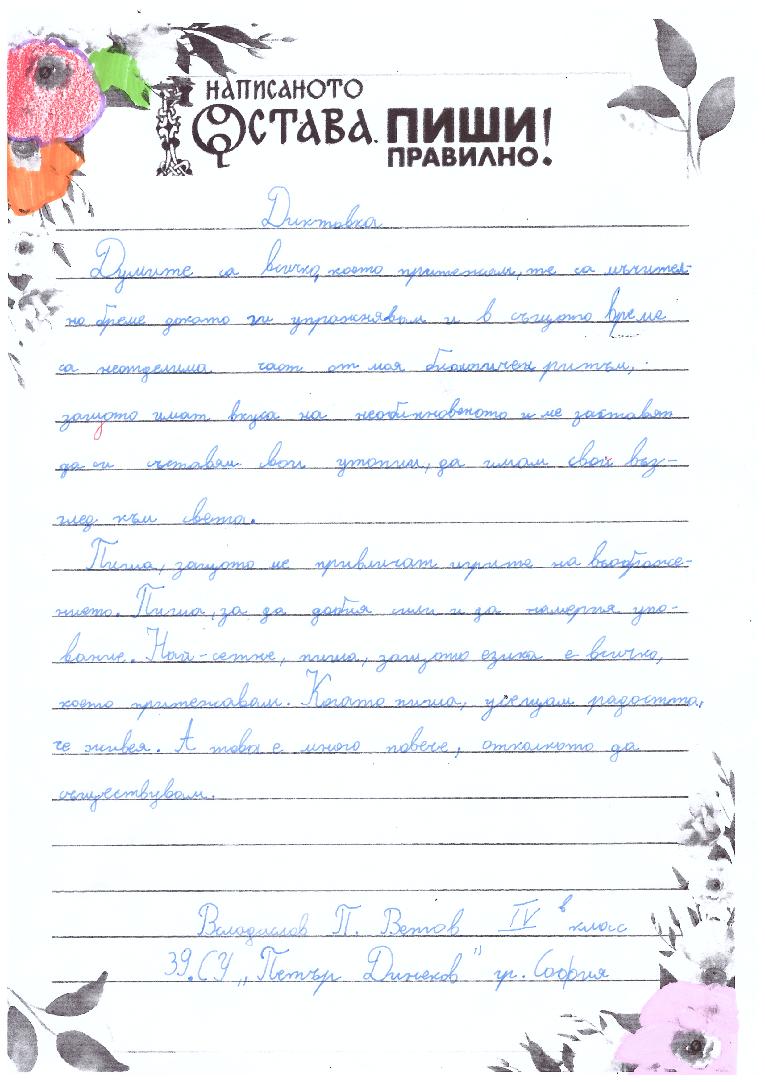 НАПИСАНОТО
ОСТАВА. ПИШИ
ПРАВИЛНО!
Диктовка
Думите са всичко, което притежавам, те са мъчител-
но бреме докато ги упражнявам и в същото време
са неотделима част от моя биологичен ритъм,
защото имат вкуса на необикновеното и ме заставят
да си съставям свои утопии, да имам свой въз-
глед към света.
Пиша, защото ме привличат игрите на въображе-
нието. Пиша, за да добия сили и да намеря упо-
вание. Най-сетне, пиша, защото езика е всичко,
което притежавам. Когато пиша, усещам радостта,
че живея. А това е много повече, отколкото да
съществувам.
Владислав П. Ветов IV в клас
39. СУ „Петър Динеков" гр. София